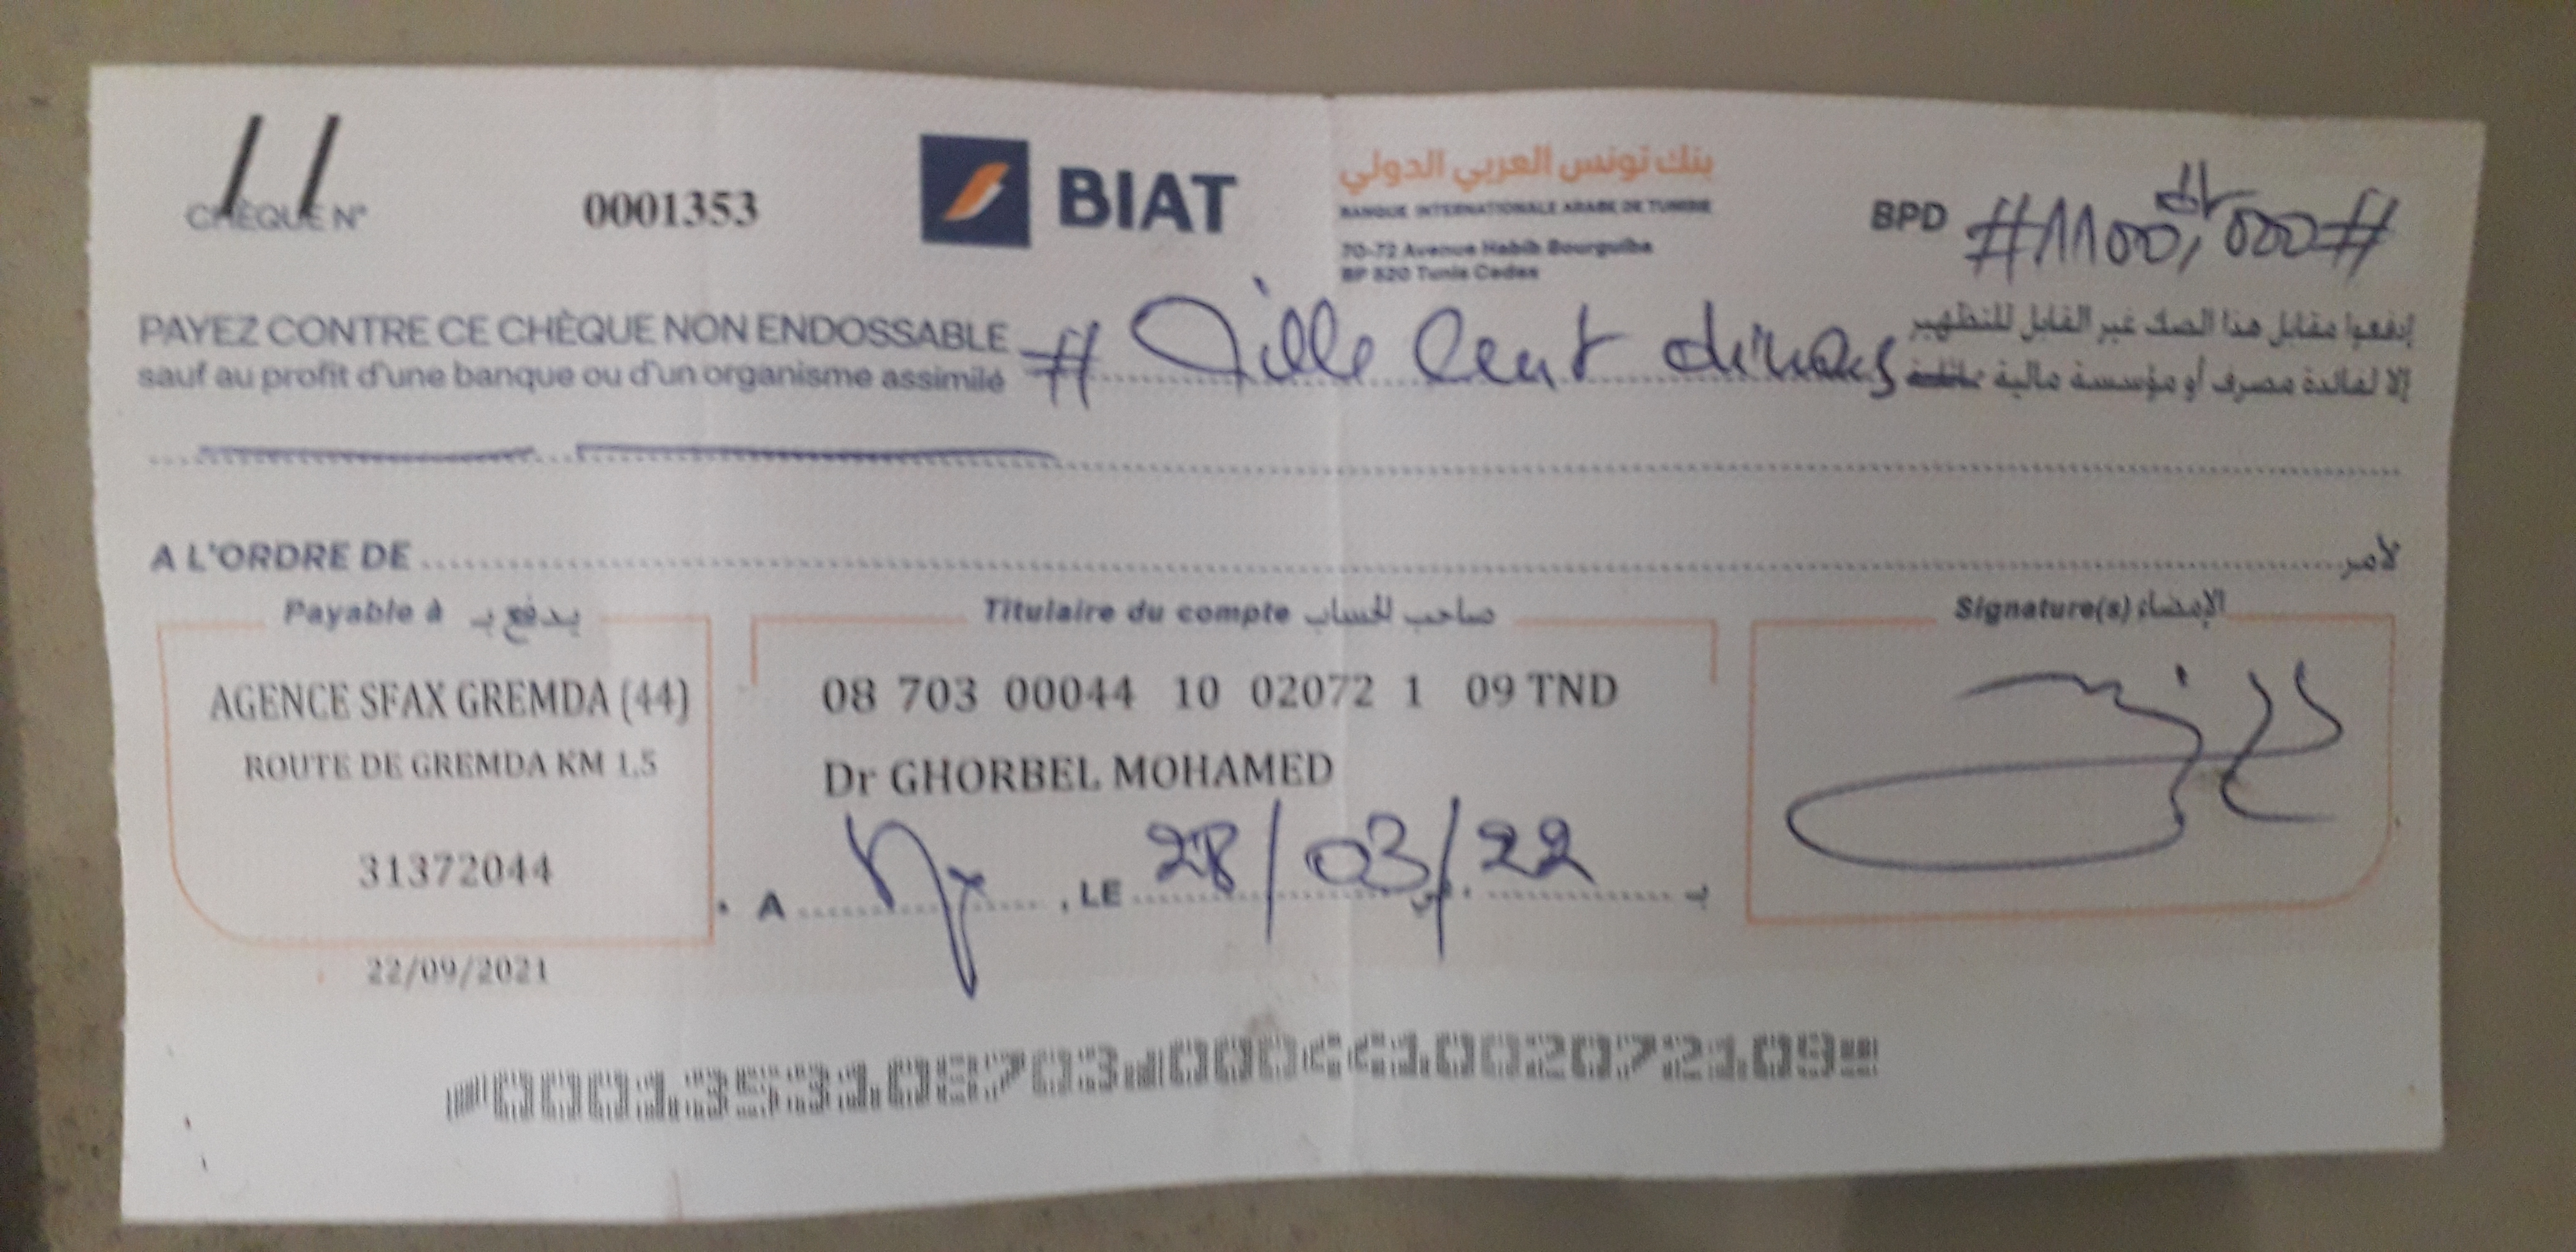 CHÈQUE N° 0001353
BIAT
بنك تونس العربي الدولي
BANQUE INTERNATIONALE ARABE DE TUNISIE
70-72 Avenue Habib Bourguiba
BP 520 Tunis Cedex
BPD #1100,000# dt
PAYEZ CONTRE CE CHÈQUE NON ENDOSSABLE
sauf au profit d'une banque ou d'un organisme assimilé
# Mille Cent dinars
إدفعوا مقابل هذا الصك غير القابل للتظهير
إلا لفائدة مصرف أو مؤسسة مالية
A L'ORDRE DE لأمر
Payable à يدفع بـ
AGENCE SFAX GREMDA (44)
ROUTE DE GREMDA KM 1,5
31372044
22/09/2021
Titulaire du compte صاحب الحساب
08 703 00044 10 02072 1 09 TND
Dr GHORBEL MOHAMED
A , LE 28/03/22
Signature(s) الإمضاء
0001353108703 000441002072109